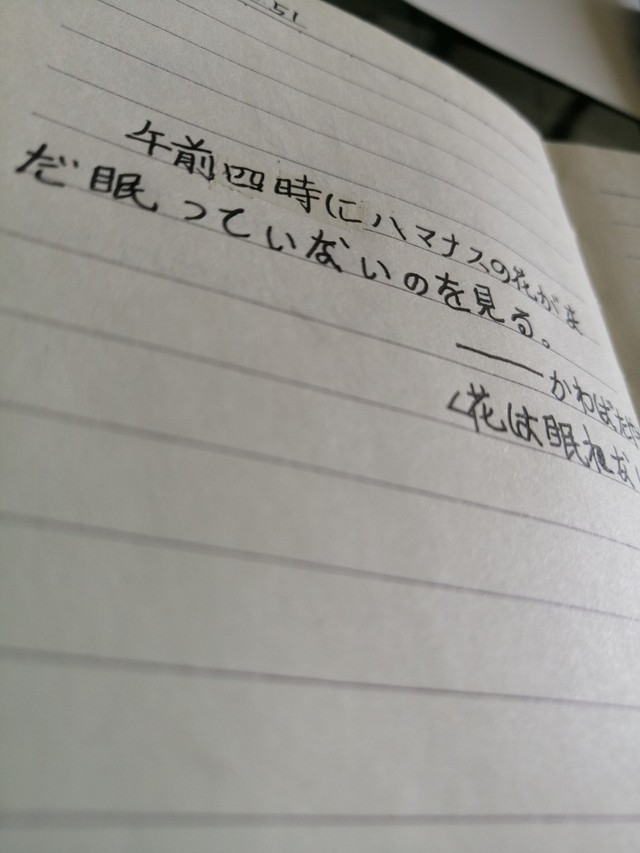 51
午前四時にハマナスの花がま
だ眠っていないのを見る。
——かわばた
く花は眠れな